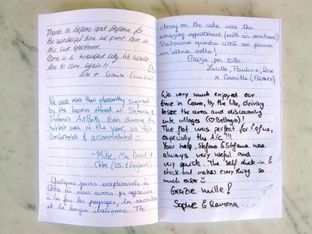 Thanks to Stefano and Stefania for
the wonderful time we spent here in
this cute apartment.
Como is a beautiful city, we would
love to come again !!
We were more than pleasantly surprised
by the layout offered at
Stefano's Airbnb. Even during the
hottest week of the year, we felt
comfortable & accommodated
- Mike, Mia, David &
Chloe (US & England)
Quelques jours exceptionnels à
Côme où nous avons pu apprécier
à la fois les paysages, la
et la langue italienne. The
cherry on the cake was this
amazing apartment (with air conditioner)
Visiteremo questa città con piacere
un'altra volta!
Grazie per tutto
Lucille, Pauline, Rose
& Camille (France)
We very much enjoyed our
time in Como, by the Lake, driving
to see the area and discovering
cute villages (Bellagio!)
The flat was perfect for
especially the A/C !!!
Your help, Stefano & Stefania was
always very useful and
very quick. The self check-in &
check-out makes everything so
much easier
Grazie mille!
Sophie & Ramona